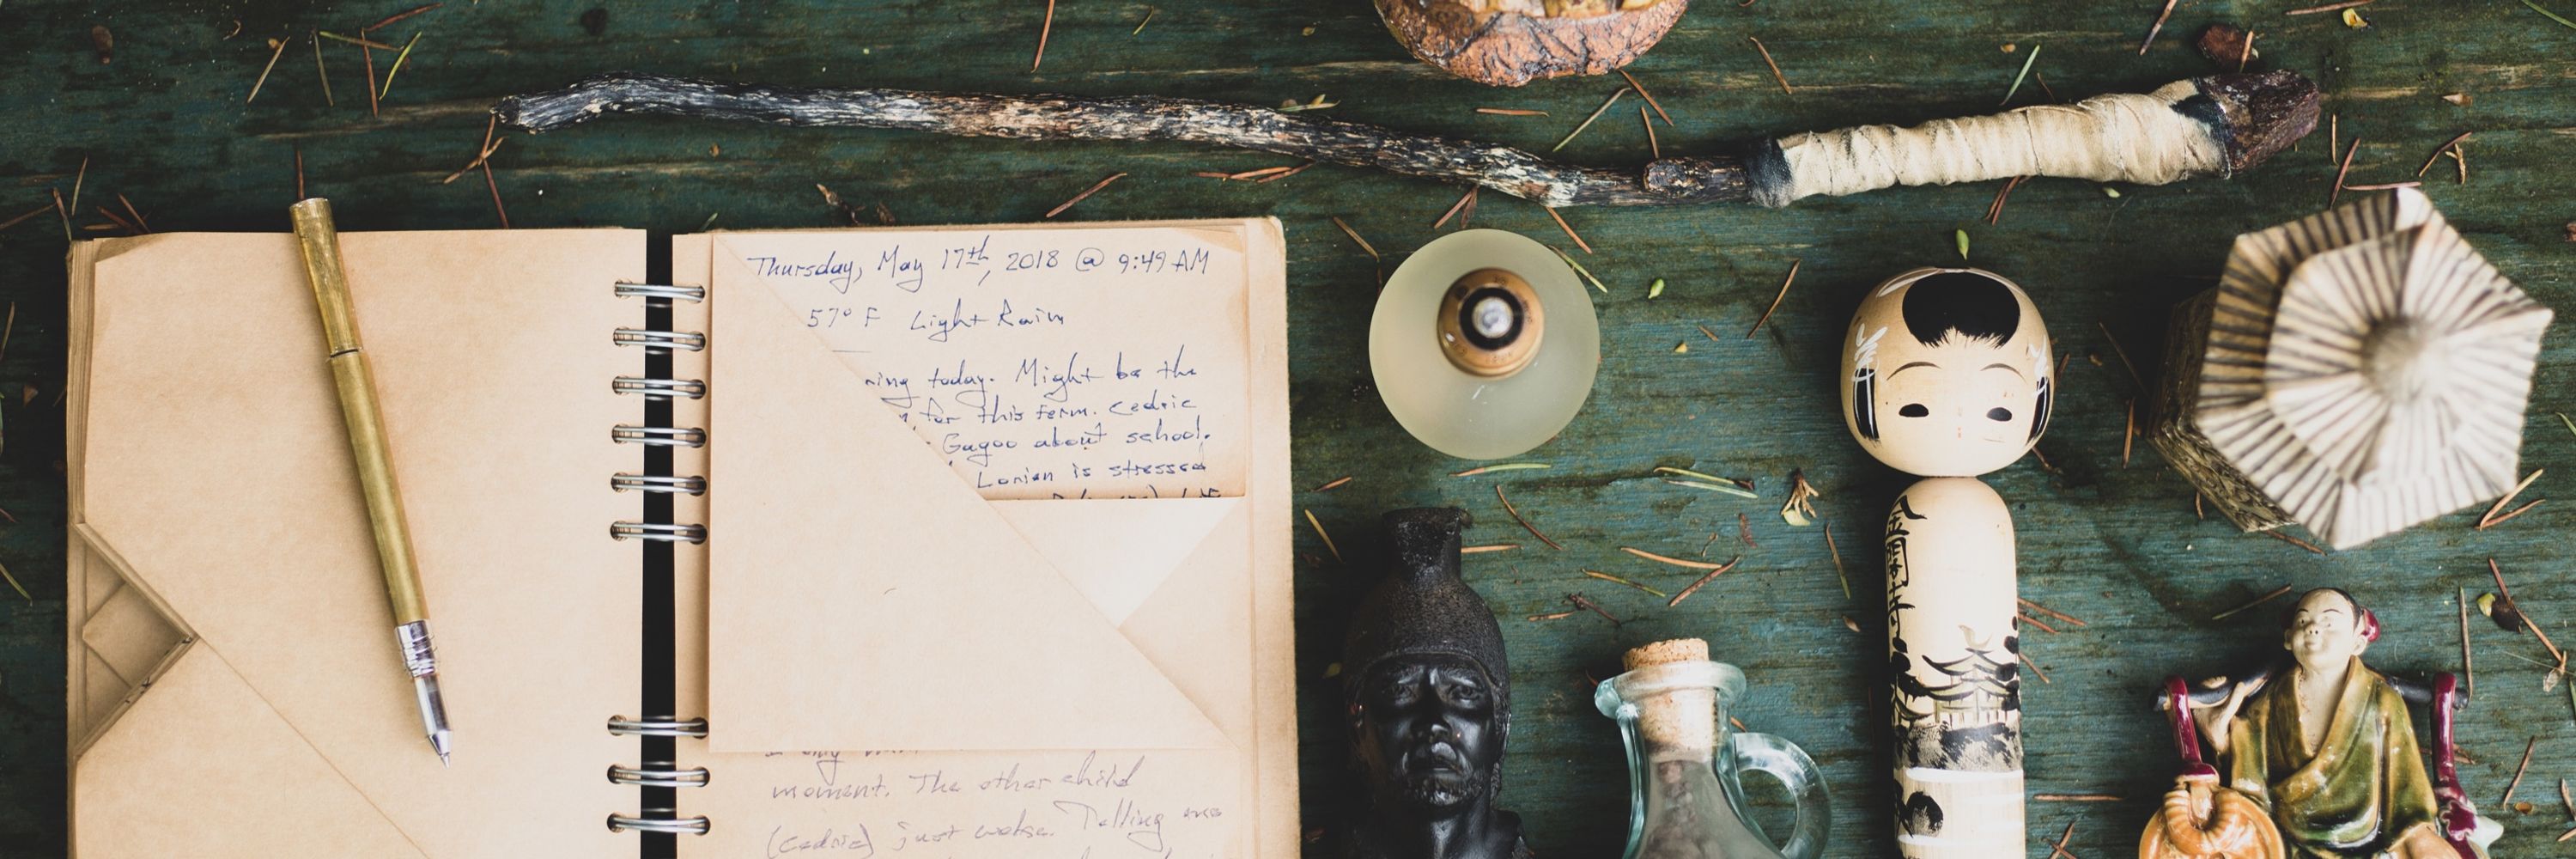 Thursday, May 17th, 2018 @ 9:49 AM
57° F Light Rain
ning today. Might be the
for this term. Cedric
Gagoo about school.
Lorien is stressed
moment. The other child
(Cedric) just woke. Telling me